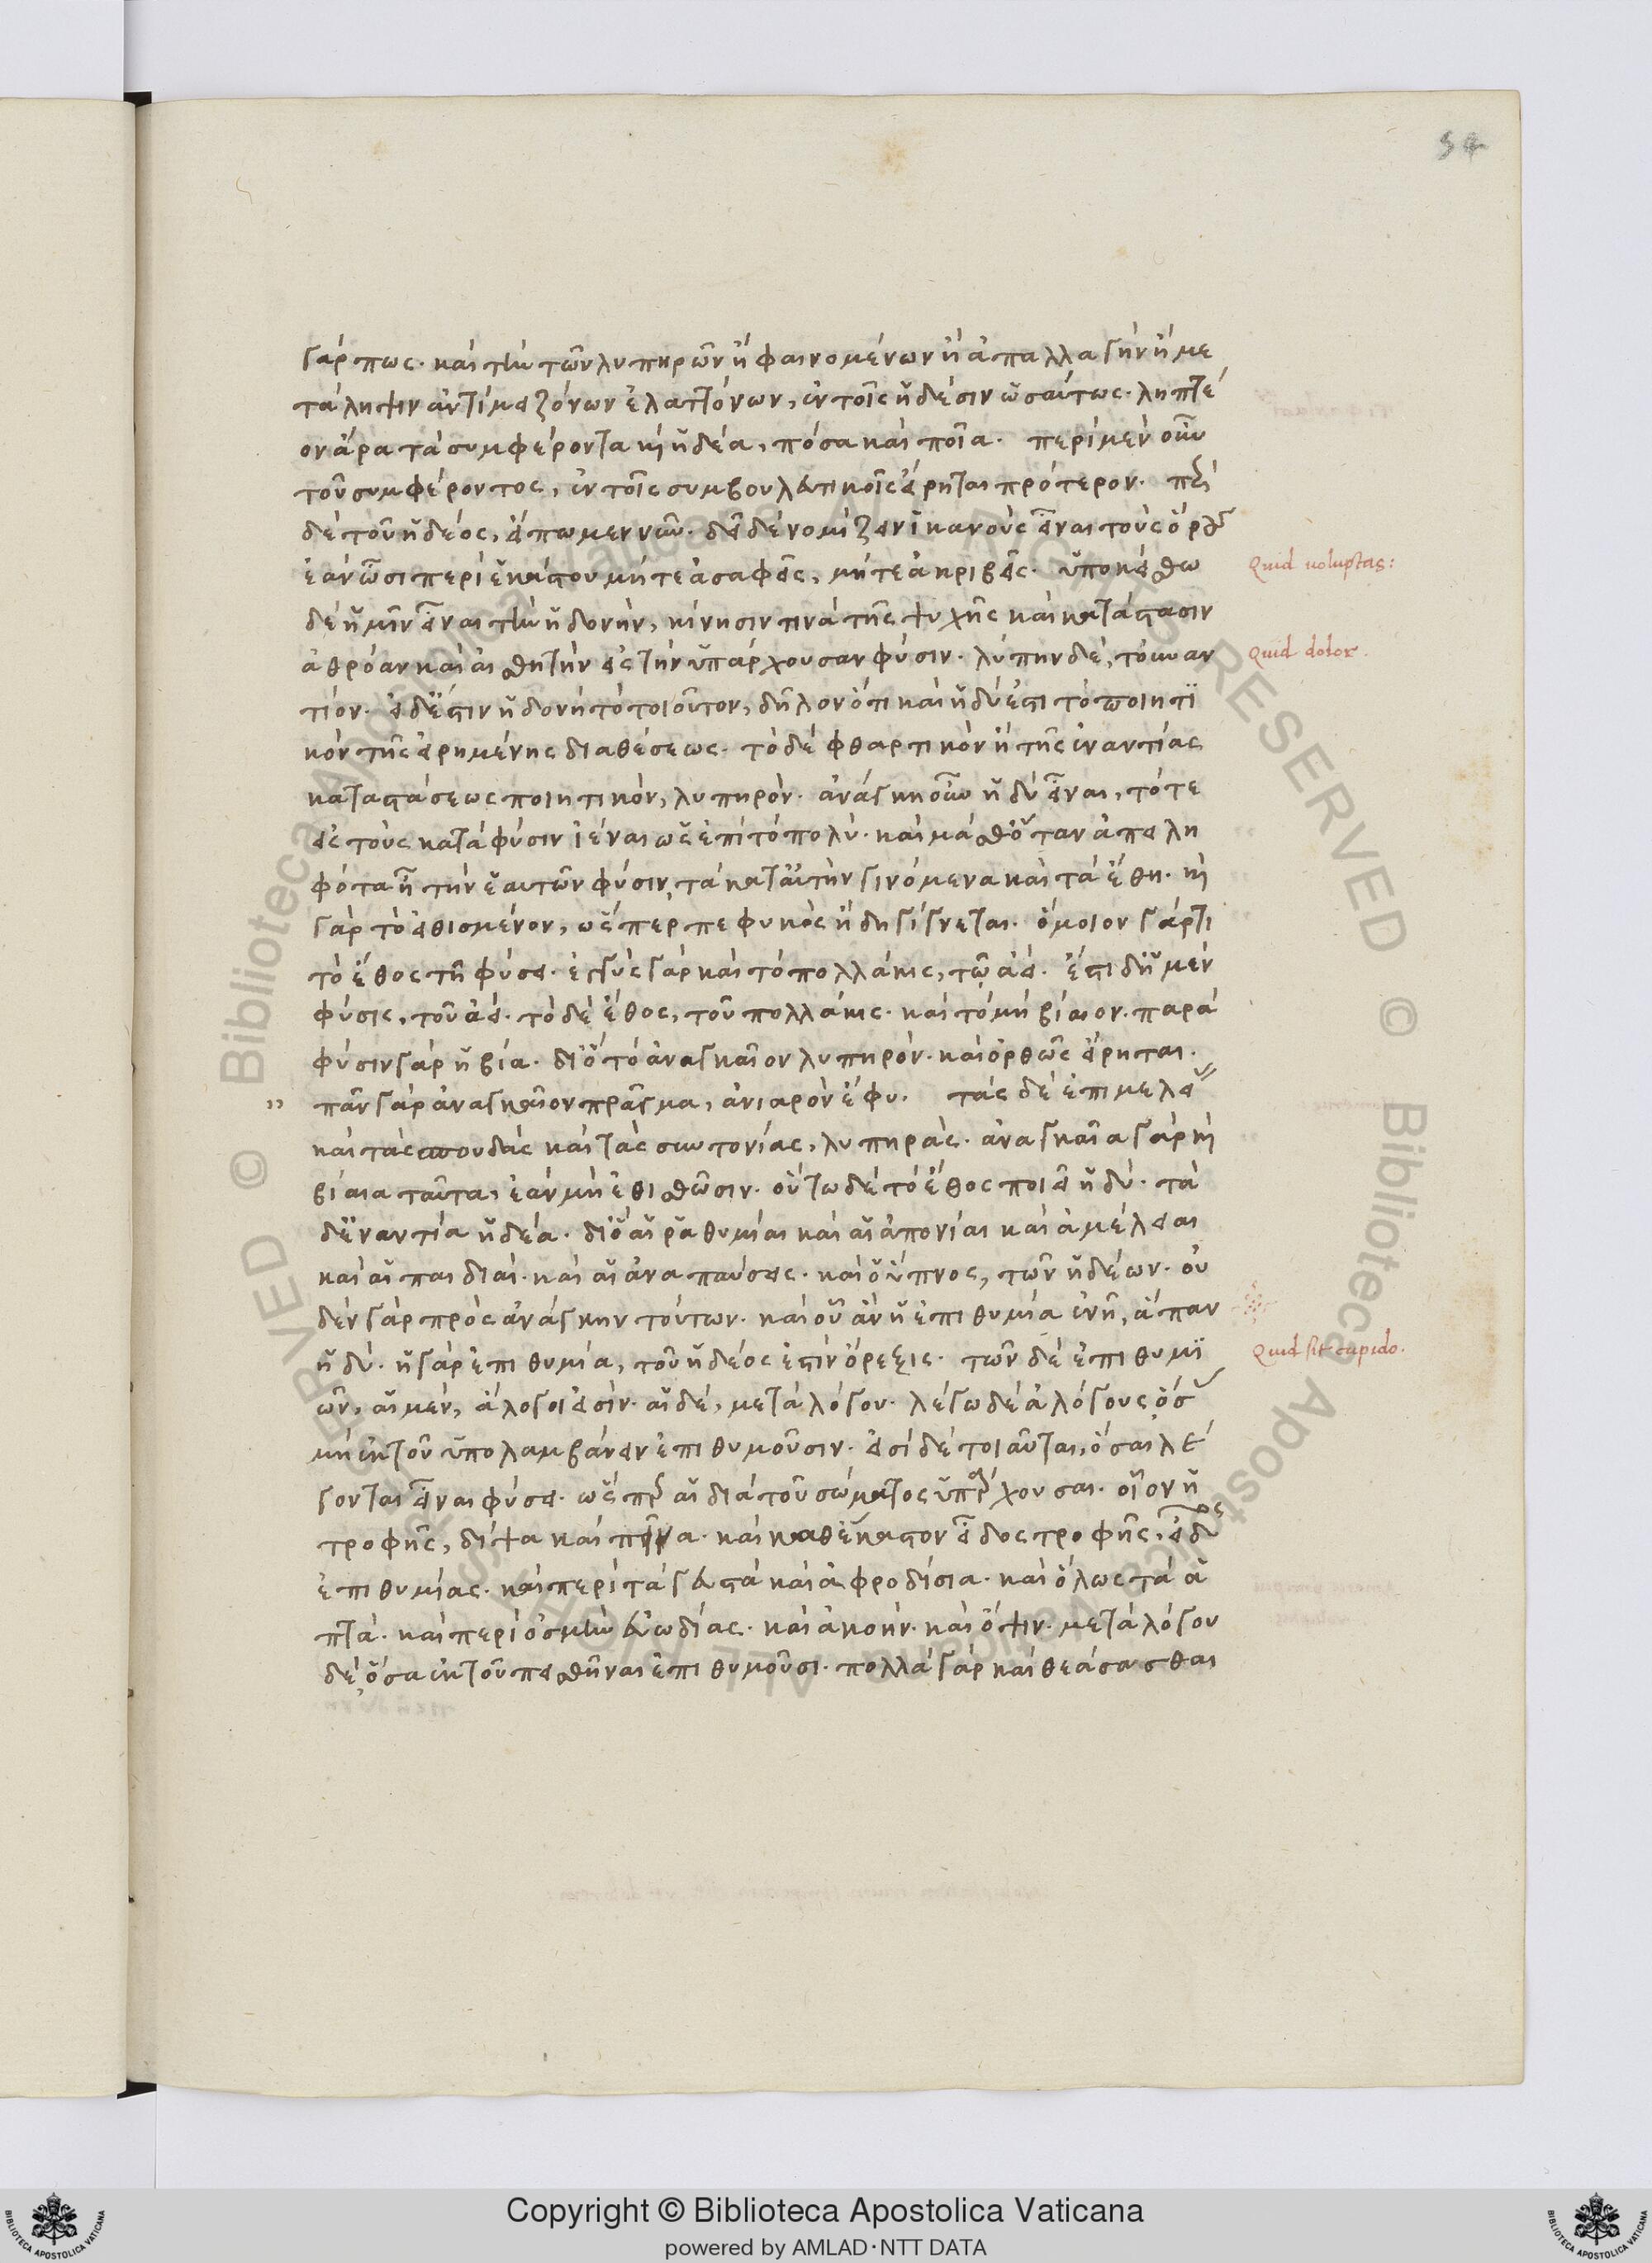 54
γάρ πως· καὶ τὴν τῶν λυπηρῶν ἢ φαινομένων ἢ ἀπαλλαγὴν ἢ με
τάληψιν ἀντὶ μειζόνων ἐλαττόνων, ἐν τοῖς ἡδέσιν ὡσαύτως· ληπτέ
ον ἄρα τὰ συμφέροντα καὶ ἡδέα, πόσα καὶ ποῖα· περὶ μὲν οὖν
τοῦ συμφέροντος, ἐν τοῖς συμβουλευτικοῖς εἴρηται πρότερον· περὶ
δὲ τοῦ ἡδέος, εἴπωμεν νῦν· δεῖ δὲ νομίζειν ἱκανοὺς εἶναι τοὺς ὅρους
ἐὰν ὦσι περὶ ἑκάστου μήτε ἀσαφεῖς, μήτε ἀκριβεῖς· ὑποκείσθω
Quid uoluptas:
δὲ ἡμῖν εἶναι τὴν ἡδονὴν, κίνησιν τινὰ τῆς ψυχῆς καὶ κατάστασιν
ἀθρόαν καὶ αἰσθητὴν εἰς τὴν ὑπάρχουσαν φύσιν· λύπην δὲ, τὸ ἐναν
Quid dolor.
τίον· εἰ δέ ἐστιν ἡδονὴ τὸ τοιοῦτον, δῆλον ὅτι καὶ ἡδύ ἐστι τὸ ποιητι
κὸν τῆς εἰρημένης διαθέσεως· τὸ δὲ φθαρτικὸν ἢ τῆς ἐναντίας
καταστάσεως ποιητικὸν, λυπηρόν· ἀνάγκη οὖν ἡδὺ εἶναι, τό τε
εἰς τοὺς κατὰ φύσιν ἰέναι ὡς ἐπὶ τὸ πολύ· καὶ μάλισθ' ὅταν ἀπειλη
φότα ᾖ τὴν ἑαυτῶν φύσιν, τὰ κατ' αὐτὴν γινόμενα καὶ τὰ ἔθη· καὶ
γὰρ τὸ εἰθισμένον, ὥσπερ πεφυκὸς ἤδη γίγνεται· ὅμοιον γάρ τι
τὸ ἔθος τῇ φύσει· ἐγγὺς γὰρ καὶ τὸ πολλάκις, τῷ ἀεί· ἔστι δ' ἡ μὲν
φύσις, τοῦ ἀεί· τὸ δὲ ἔθος, τοῦ πολλάκις· καὶ τὸ μὴ βίαιον· παρὰ
φύσιν γὰρ ἡ βία· διὸ τὸ ἀναγκαῖον λυπηρόν· καὶ ὀρθῶς εἴρηται·
" πᾶν γὰρ ἀναγκαῖον πρᾶγμα, ἀνιαρὸν ἔφυ· τὰς δὲ ἐπιμελείας
καὶ τὰς σπουδὰς καὶ τὰς συντονίας, λυπηράς· ἀναγκαῖα γὰρ καὶ
βίαια ταῦτα, ἐὰν μὴ ἐθισθῶσιν· οὕτω δὲ τὸ ἔθος ποιεῖ ἡδύ· τὰ
δ' ἐναντία ἡδέα· διὸ αἱ ῥᾳθυμίαι καὶ αἱ ἀπονίαι καὶ ἀμέλειαι
καὶ αἱ παιδιαί· καὶ αἱ ἀναπαύσεις· καὶ ὁ ὕπνος, τῶν ἡδέων· οὐ
δὲν γὰρ πρὸς ἀνάγκην τούτων· καὶ οὗ ἂν ἡ ἐπιθυμία ἐνῇ, ἅπαν
ἡδύ· ἡ γὰρ ἐπιθυμία, τοῦ ἡδέος ἐστὶν ὄρεξις· τῶν δὲ ἐπιθυμι
Quid sit cupido.
ῶν, αἱ μὲν, ἄλογοι εἰσίν· αἱ δὲ, μετὰ λόγου· λέγω δὲ ἀλόγους, ὅσας
μὴ ἐκ τοῦ ὑπολαμβάνειν ἐπιθυμοῦσιν· εἰσὶ δὲ τοιαῦται, ὅσαι λέ
γονται εἶναι φύσει· ὥσπερ αἱ διὰ τοῦ σώματος ὑπάρχουσαι· οἷον ἡ
τροφῆς, δίψα καὶ πεῖνα· καὶ καθ' ἕκαστον εἶδος τροφῆς, εἶδος
ἐπιθυμίας· καὶ περὶ τὰ γευστὰ καὶ ἀφροδίσια· καὶ ὅλως τὰ ἁ
πτά· καὶ περὶ ὀσμὴν εὐωδίας· καὶ ἀκοήν· καὶ ὄψιν· μετὰ λόγου
δὲ, ὅσα ἐκ τοῦ πεισθῆναι ἐπιθυμοῦσι· πολλὰ γὰρ καὶ θεάσασθαι
Copyright © Biblioteca Apostolica Vaticana
powered by AMLAD·NTT DATA